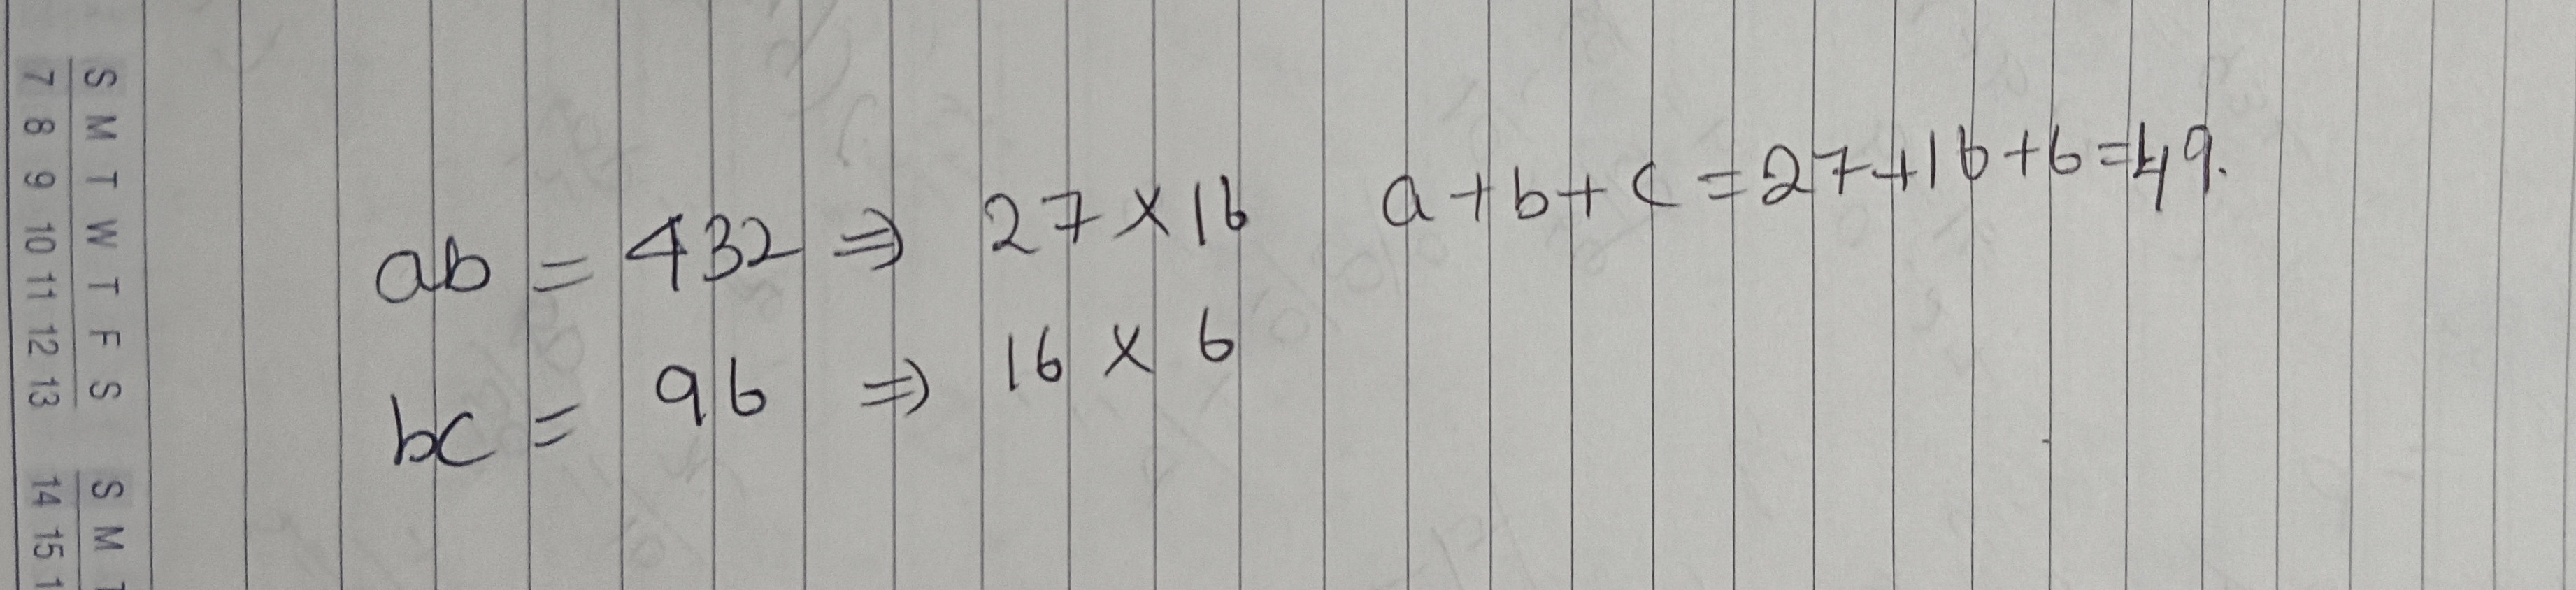 ab = 432 ⇒ 27 × 16 a + b + c = 27 + 16 + 6 = 49.
bc = 96 ⇒ 16 × 6
S M T W T F S S M T
7 8 9 10 11 12 13 14 15 1